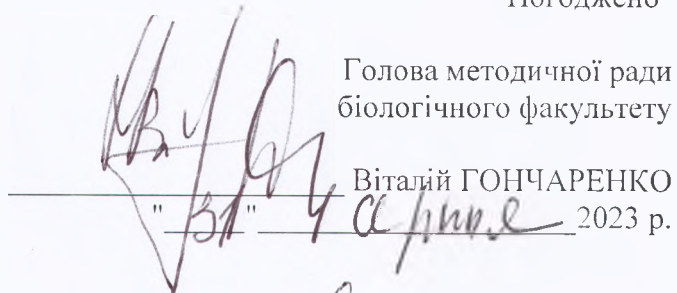 Погоджено
Голова методичної ради
біологічного факультету
Віталій ГОНЧАРЕНКО
"31" 2023 р.